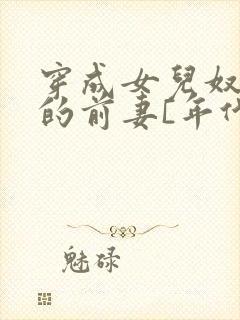 穿成女兒奴
的前妻[年代
魅碌